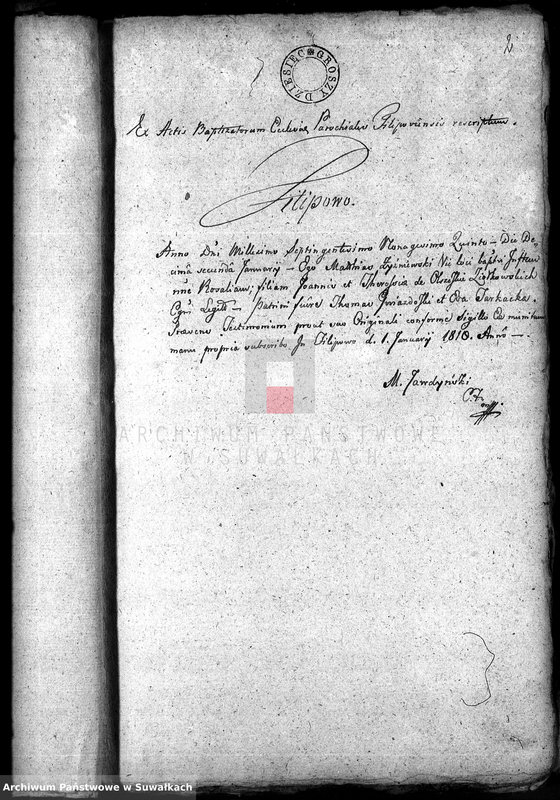 2
DZIESIĘĆ GROSZY
Ex Actis Baptizatorum Ecclesiæ Parochialis Filipoviensis rescriptum.
Filipowo.
Anno Dni Millesimo Septingentesimo Nonagesimo Quinto – Die De-
cima secunda January – Ego Matthias Vic loci bapta Infan-
nne Rosaliam, filiam Joannis et Theresiæ de
Cgu Legtt – Patrini fuere Thomas Gwiazdoski et Eva Tarkacka.
Præsens Testimonium prout suo Originali conforme Sigillo Eæ munitum
manu propria subscribo In Filipowo d. 1. January 1818. Anno –
M. Jawdyński
ARCHIWUM PAŃSTWOWE
W SUWAŁKACH
Archiwum Państwowe w Suwałkach